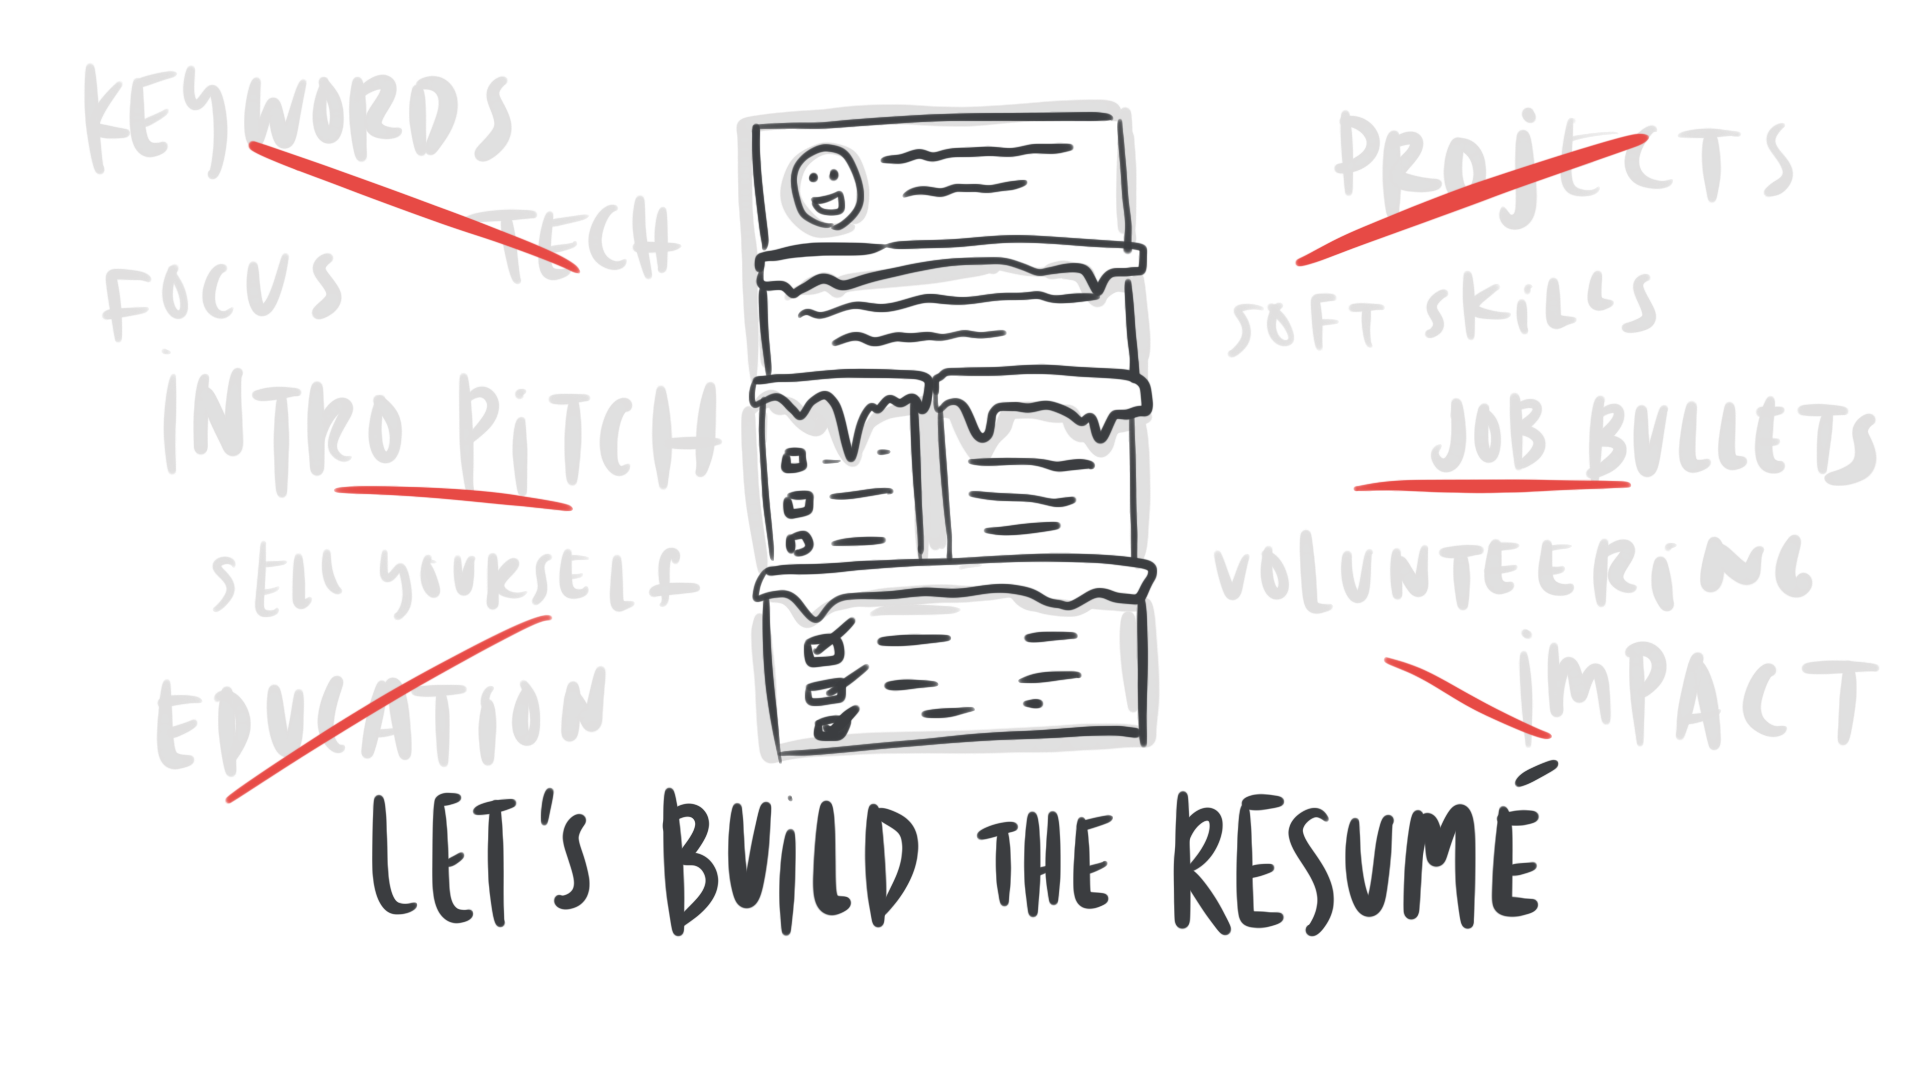 KEYWORDS
TECH
FOCUS
INTRO PiTCH
SELL YOURSELF
EDUCATION
PROjECTS
SOFT SKiLLS
JOB BULLETS
VOLUNTEERiNG
iMPACT
LET'S BUiLD THE RESUMÉ